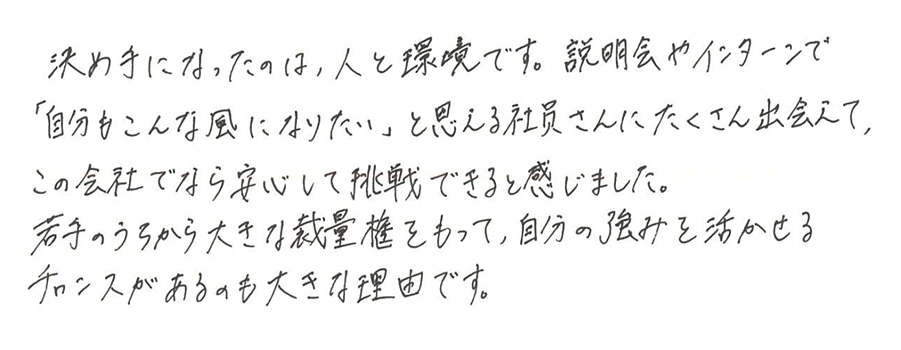 決め手になったのは、人と環境です。説明会やインターンで
「自分もこんな風になりたい」と思える社員さんにたくさん出会えて、
この会社でなら安心して挑戦できると感じました。
若手のうちから大きな裁量権をもって、自分の強みを活かせる
チャンスがあるのも大きな理由です。